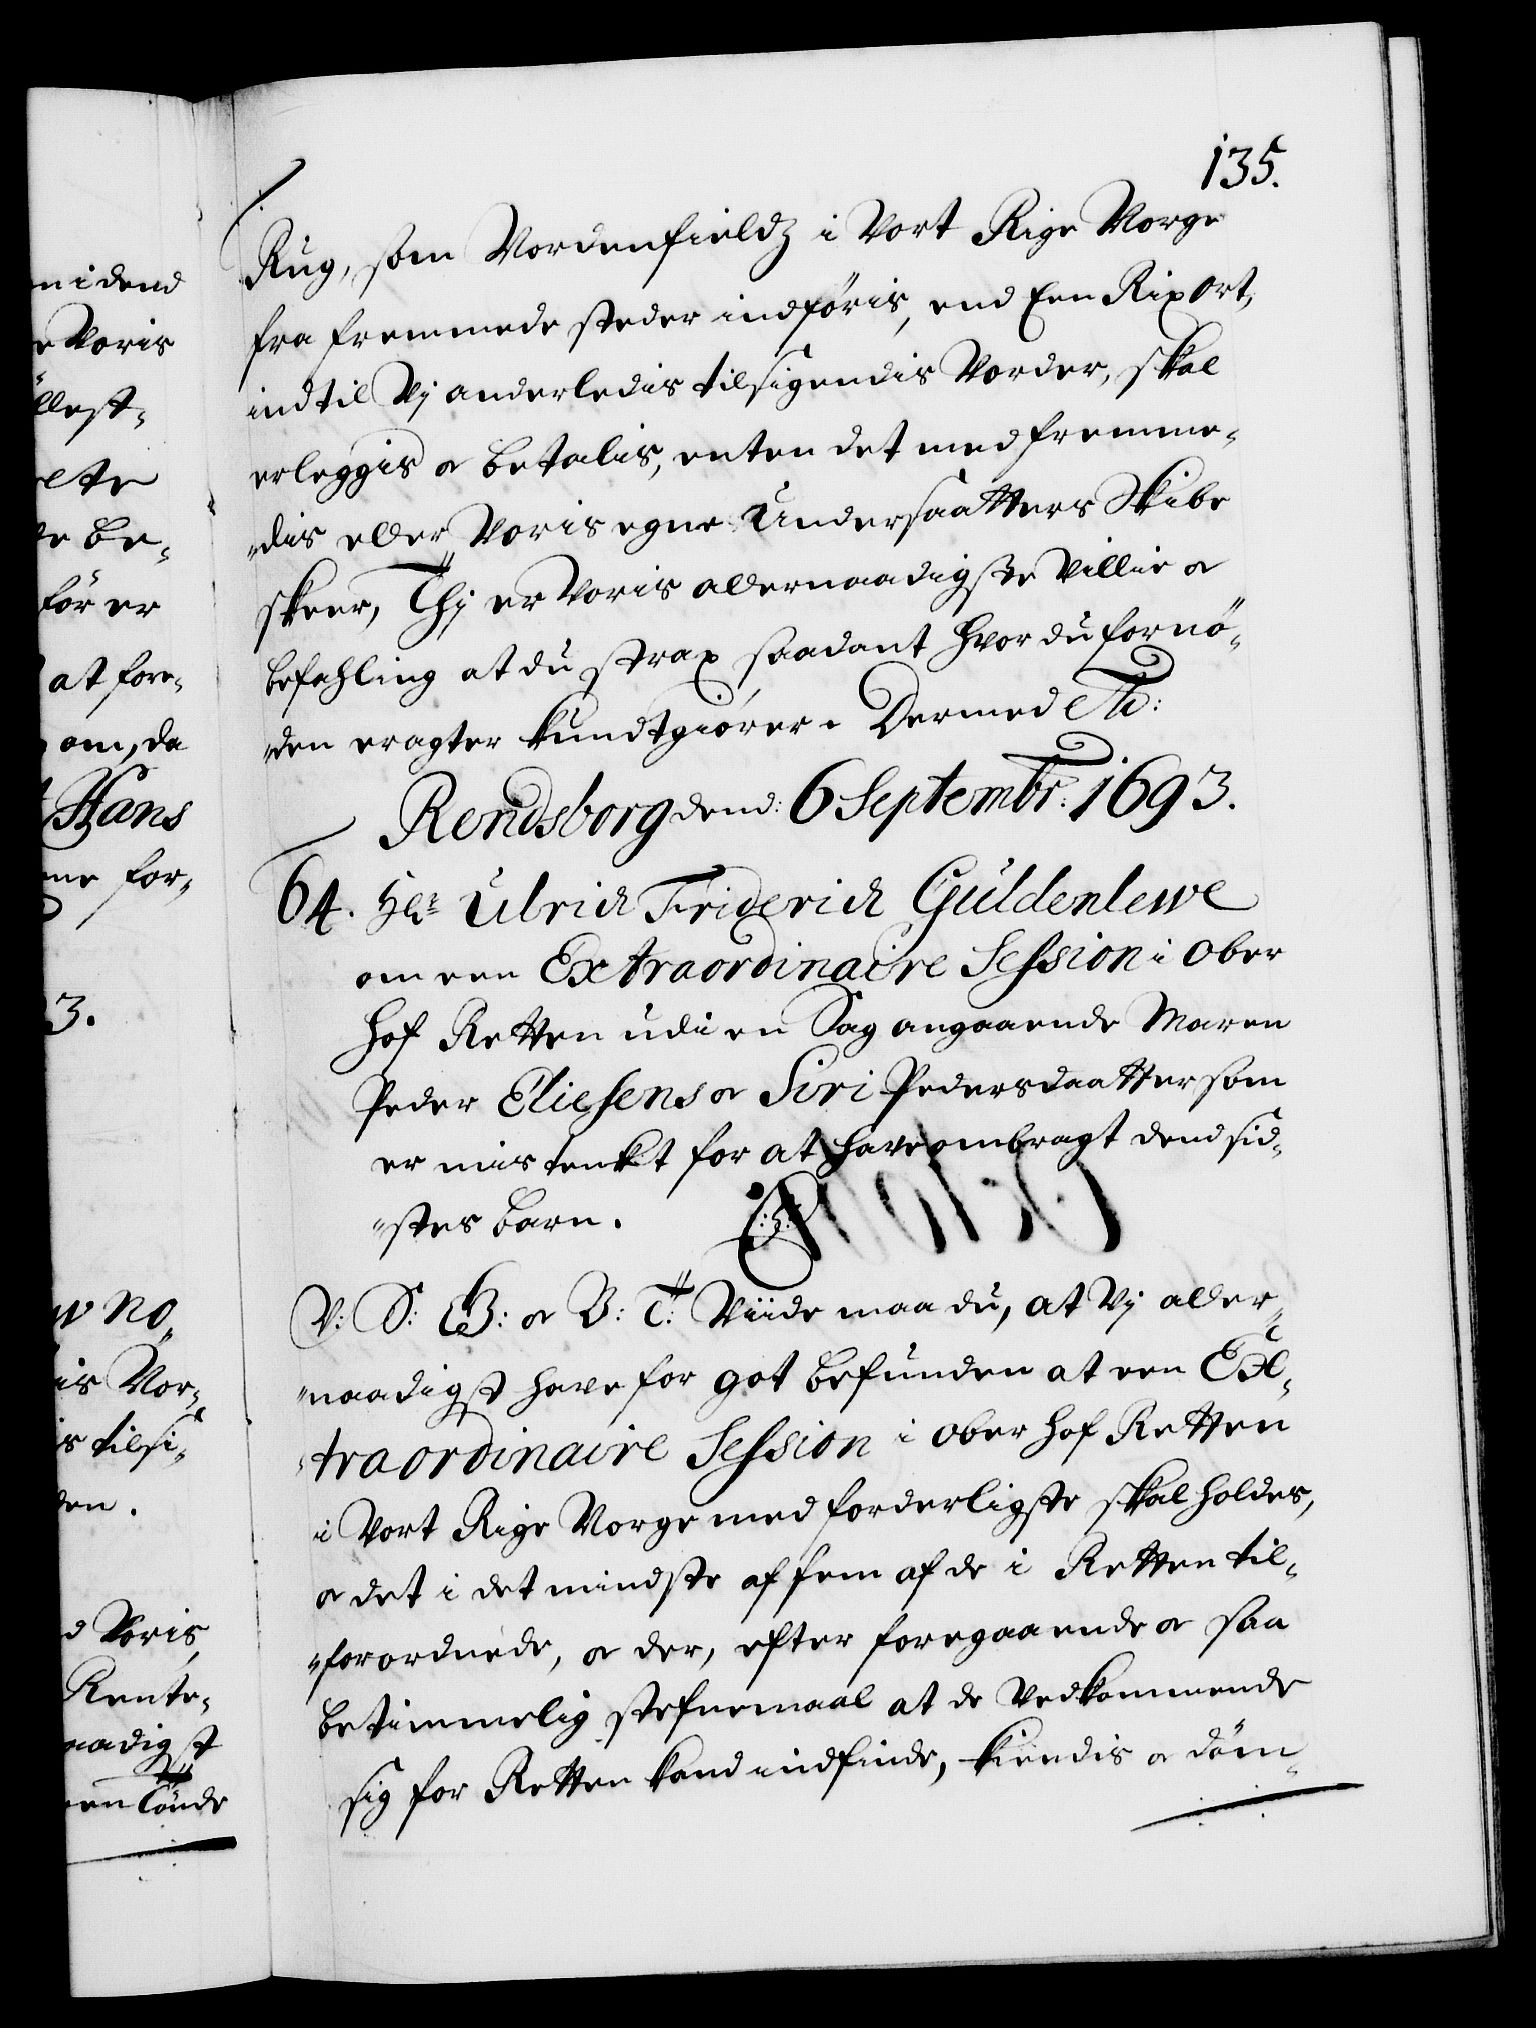 135.
Rug, som Nordenfieldz i Vort Rige Norge
fra fremmede steder indføris, end Een Rix Ort,
indtil Vj anderledis tilsigendis Vorder, skal
erleggis oc betalis, enten det med fremme„
„dis eller Voris egne Undersaatters Skibe
skeer, Thj er Voris allernaadigste Villie oc
befahling at du strax saadant hvor du fornö„
„den eragter kundtgiörer. Dermed Etc:
Rendsborg dend: 6 Septembr: 1693.
64. Hr: Ulrich Friderich Güldenlewe
om een Extraordinaire Session i Ober
Hof Retten udi en Sag angaaende Maren
Peder Eliesens oc Siri Pedersdaatter som
er mistenkt for at have ombragt dend sid„
„stes barn.
V: S: G: oc B: T: Viide maa du, at Vj aller„
„naadigst have for got befunden at een Ex„
„traordinaire Session i Ober Hof Retten
i Vort Rige Norge med forderligste skal holdes,
oc det i det mindste af fem af de i Retten til„
„forordnede, oc der, efter foregaaende oc saa
betimmelig stefnemaal at de Vedkommende
sig for Retten kand indfinde, kiendis oc döm„
n i dend
Voris
llest„
be„
för er
at fore„
om, da
Hans
for„
3.
no„
is Vor„
s tilsi„
den.
d Voris
Rente„
naadigst
een Tönde